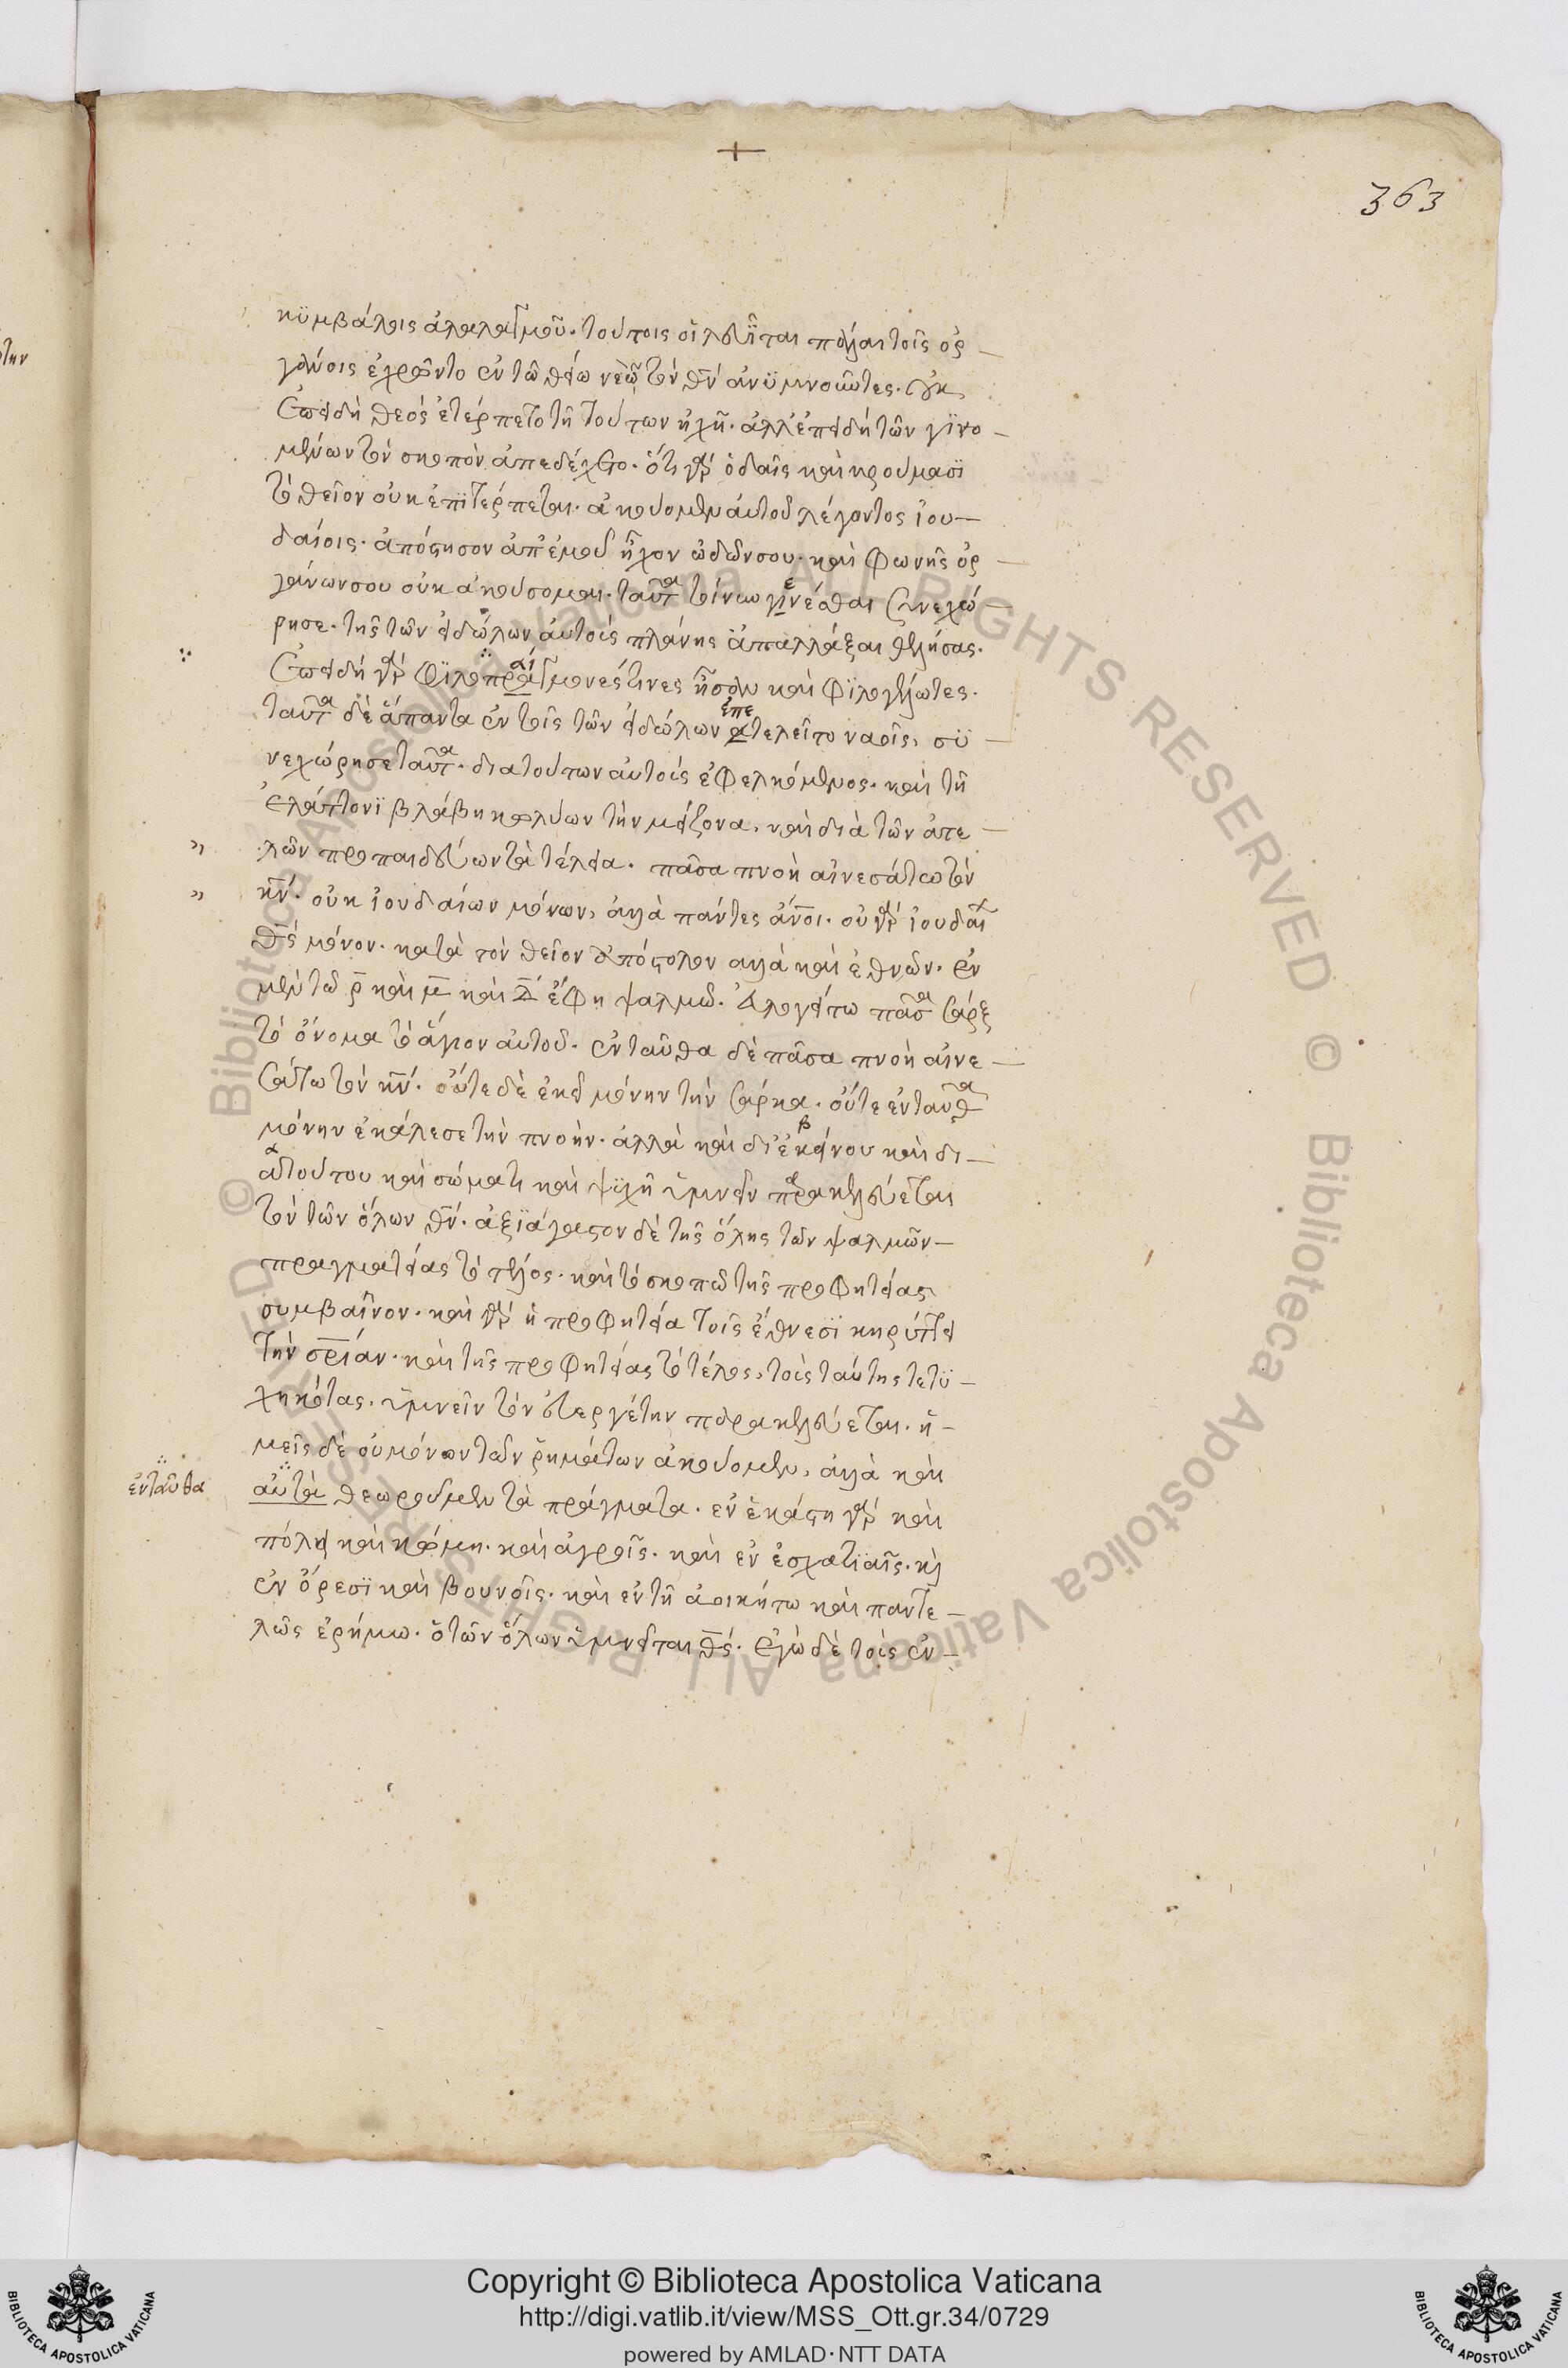 363
κυμβάλοις ἀλαλαγμοῦ. τούτοις οἱ λευῖται πάλαι τοῖς ὀρ
γάνοις ἐχρῶντο ἐν τῶ θείω νεῶ τὸν θν ἀνυμνοῦντες. οὐκ
ἐπειδὴ θεὸς ἐτέρπετο τῆ τούτων ἠχῆ. ἀλλ' ἐπειδὴ τῶν γινο
μένων τὸν σκοπὸν ἀπεδέχετο. ὅτι γὰρ ὀδαῖς καὶ κρούμασϊ
τὸ θεῖον οὐκ ἐπιτέρπεται. ἀκούομεν αὐτοῦ λέγοντος ἰου
δαίοις. ἀπόστησον ἀπ' ἐμοῦ ἦχον ὠδῶν σου. καὶ φωνῆς ὀρ
γάνων σου οὐκ ἀκούσομαι. ταῦτα τοίνυν γινέσθαι συνεχώ
ρησε. τῆς τῶν εἰδώλων αὐτοὺς πλάνης ἀπαλλάξαι θελήσας.
ἐπειδὴ γὰρ φϊλοπραίγμονές τινες ἦσαν καὶ φϊλογέλωτες.
ταῦτα δὲ ἅπαντα ἐν τοῖς τῶν εἰδώλων ἐπετελεῖτο ναοῖς, συ
νεχώρησε ταῦτα. διὰ τούτων αὐτοὺς ἐφελκόμενος. καὶ τῆ
ἐλάττονϊ βλάβη κωλύων τὴν μείζονα. καὶ διὰ τῶν ἀτε
λῶν προπαιδεύων τὰ τέλεια. πᾶσα πνοὴ αἰνεσάτω τὸν
κν. οὐκ ἰουδαίων μόνων, ἀλλὰ πάντες ἄνοι. οὐ γὰρ ἰουδαί
θς μόνον. κατὰ τὸν θεῖον ἀπόστολον ἀλλὰ καὶ ἐθνῶν. ἐν
μὲν τῶ ρ καὶ μ καὶ δ ἔφη ψαλμῶ. εὐλογείτω πᾶσα σὰρξ
τὸ ὄνομα τὸ ἅγιον αὐτοῦ. ἐνταῦθα δὲ πᾶσα πνοὴ αἰνε
σάτω τὸν κν. οὔτε δὲ ἐκεῖ μόνην τὴν σάρκα. οὔτε ἐνταῦθα
μόνην ἐκάλεσε τὴν πνοὴν. ἀλλὰ καὶ δι' ἐκείνου καὶ δι
ὰ τούτου καὶ σώματι καὶ ψϋχῆ ὑμνεῖν παρακελεύεται
τὸν τῶν ὅλων θν. ἀξϊάγαστον δὲ τῆς ὅλης τῶν ψαλμῶν
πραγματείας τὸ τέλος. καὶ τὸ σκοπῶ τῆς προφητείας
συμβαῖνον. καὶ γὰρ ἡ προφητεία τοῖς ἔθνεσϊ κηρύττει
τὴν σρίαν. καὶ τῆς προφητείας τὸ τέλος, τοὺς ταύτης τετυ
χηκότας. ὑμνεῖν τὸν εὐεργέτην παρακελεύεται. ἡ
μεῖς δὲ οὐ μόνον τῶν ῥημάτων ἀκούομεν, ἀλλὰ καὶ
ἐνταῦθα
αὐτὰ θεωροῦμεν τὰ πράγματα. ἐν ἑκάστη γὰρ καὶ
πόλει καὶ κώμη. καὶ ἀγροῖς. καὶ ἐν ἐσχατϊαῖς. κὶ
ἐν ὄρεσϊ καὶ βουνοῖς. καὶ ἐν τῆ ἀοικήτω καὶ παντε
λῶς ἐρήμω. ὁ τῶν ὅλων ὑμνεῖται θς. ἐγὼ δὲ τοὺς ἐν
Copyright © Biblioteca Apostolica Vaticana
http://digi.vatlib.it/view/MSS_Ott.gr.34/0729
powered by AMLAD·NTT DATA